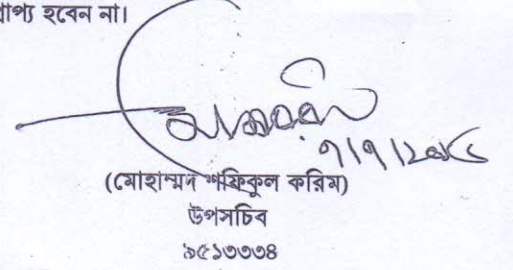 প্রাপ্য হবেন না।
(মোহাম্মদ শফিকুল করিম)
উপসচিব
৯৫১৩৩৩৪